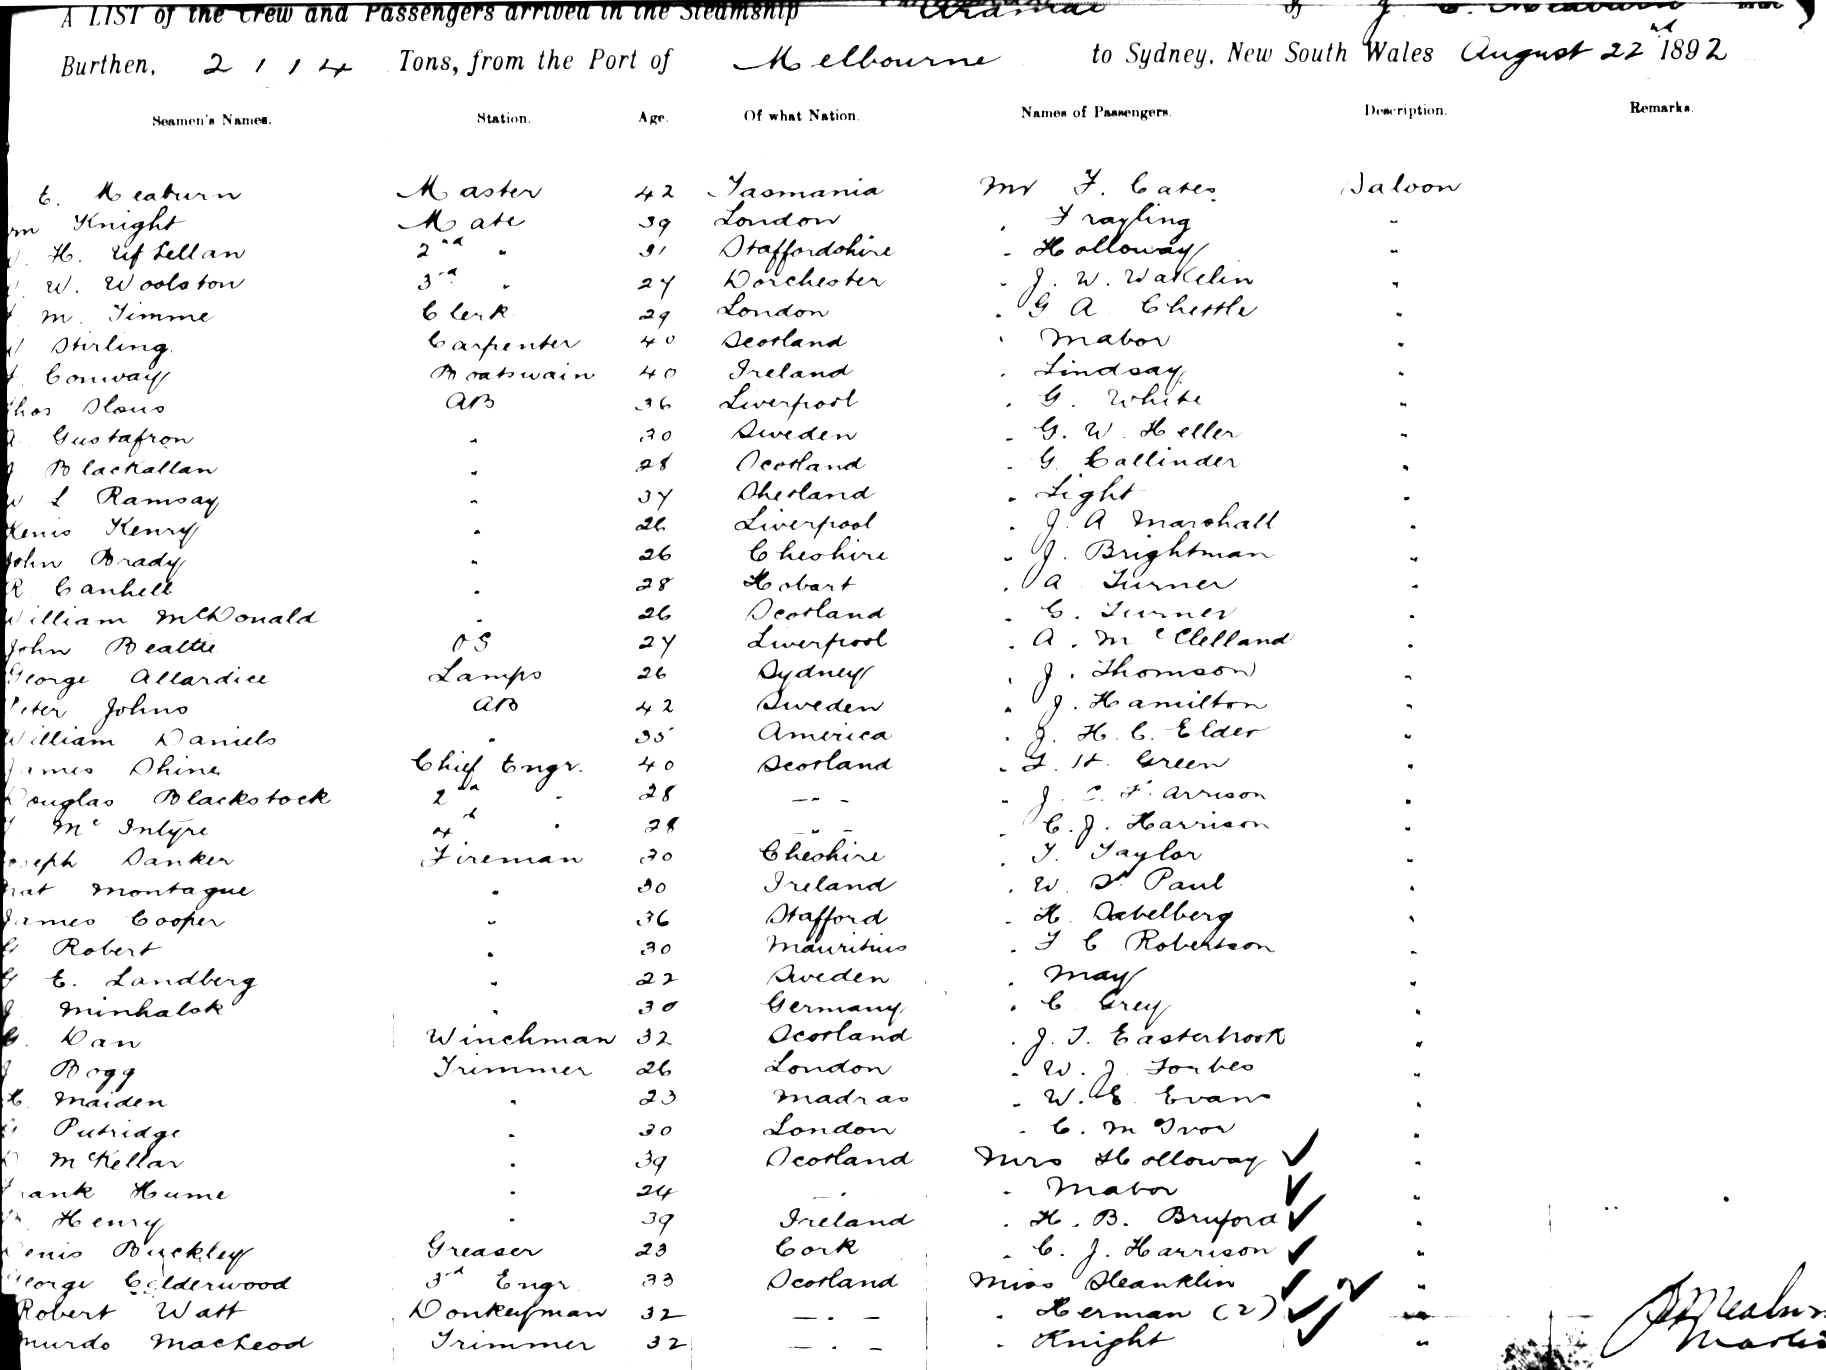 A LIST of the Crew and Passengers arrived in the Steamship Aramac of J. E. Meaburn
Burthen, 2114 Tons, from the Port of Melbourne to Sydney, New South Wales August 22nd 1892
Seamen's Names. Station. Age. Of what Nation. Names of Passengers. Description. Remarks.
E. Meaburn Master 42 Tasmania Mr F. Cates Saloon
Knight Mate 39 London " Frayling "
H. 2nd " 31 Staffordshire " Holloway "
W. Woolston 3rd " 27 Dorchester " J. W. Wakelin "
M. Timme Clerk 29 London " G A Chettle "
Stirling Carpenter 40 Scotland " Mabor "
Conway Boatswain 40 Ireland " Lindsay "
AB 36 Liverpool " G. White "
Gustafson " 30 Sweden " G. W. Heller "
Blackallan " 28 Scotland " G Callinder "
L Ramsay " 37 Shetland " Light "
Henry " 26 Liverpool " J. A Marshall "
John Brady " 26 Cheshire " J. Brightman "
R Canhell " 28 Hobart " A Turner "
William McDonald " 26 Scotland " C. Turner "
John Beattie OS 27 Liverpool " A. McClelland "
George Allardice Lamps 26 Sydney " J. Thomson "
Peter Johns AB 42 Sweden " J. Hamilton "
William Daniels " 35 America " J. H. C. Elder "
James Shine Chief Engr. 40 Scotland " H. Green "
Douglas Blackstock 2nd " 28 — " — " J. C. "
McIntyre 4th " 28 — " — " C. J. Harrison "
Joseph Danker Fireman 30 Cheshire " T. Taylor "
Pat Montague " 30 Ireland " W. Paul "
James Cooper " 36 Stafford " H. Sabelberg "
G Robert " 30 Mauritius " F C Robertson "
G E. Landberg " 22 Sweden " May "
J Minhalsk " 30 Germany " C Grey "
G. Dan Winchman 32 Scotland " J. T. Easterbrook "
J Bogg Trimmer 26 London " W. J. Forbes "
Maiden " 23 Madras " W. E. Evans "
Putridge " 30 London " C. McIvor "
McKellar " 39 Scotland Mrs Holloway ✓ "
Frank Hume " 24 — " — " Mabor ✓ "
Henry " 39 Ireland " H. B. Bruford ✓ "
Denis Buckley Greaser 23 Cork " C. J. Harrison ✓ "
George Calderwood 3rd Engr 33 Scotland Miss Heanklin ✓ 2 ✓ "
Robert Watt Donkeyman 32 — " — " Herman (2) ✓✓ "
Murdo Macleod Trimmer 32 — " — " Knight ✓ "
Meaburn
Master